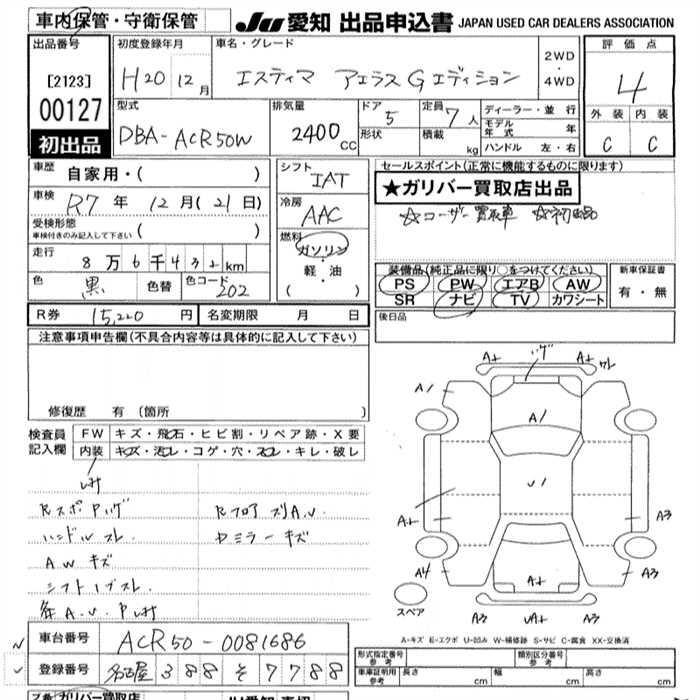 車内保管・守衛保管
JU 愛知 出品申込書 JAPAN USED CAR DEALERS ASSOCIATION
出品番号 初度登録年月 車名・グレード 2WD・4WD 評価点
[2123] H20 12月 エスティマ アエラス Gエディション 4
00127 型式 排気量 ドア 5 定員 7人 ディーラー・並行 外装 内装
DBA-ACR50W 2400cc 形状 積載 kg モデル年式 年 C C
初出品 ハンドル 左・右
車歴 自家用・( ) シフト IAT セールスポイント(正常に機能するものに限ります)
車検 R7年 12月(21日) 冷房 AAC ★ガリバー買取店出品
受検形態 車検付きのみ記入して下さい ( ) ☆ユーザー買取車 ☆初出品
走行 8万6千43 km 燃料 ガソリン・軽・油 ( )
色 黒 色替 色コード 202
装備品(純正品に限り○をつけてください) 新車保証書
PS PW エアB AW 有・無
SR ナビ TV カワシート
R券 15,220円 名変期限 月 日 後日品
注意事項申告欄(不具合内容等は具体的に記入して下さい)
修復歴 有 (箇所 )
検査員記入欄 FW キズ・飛石・ヒビ割・リペア跡・X要
内装 キズ・汚レ・コゲ・穴・スレ・キレ・破レ
ハンドルスレ ミラーキズ
AWキズ
A+ A+ ワレ
A1 A1
U1
A+ A3
A4 A+ A3
スペア A3 UA+ A3
A-キズ E-エクボ U-凹み W-補修跡 S-サビ C-腐食 XX-交換済
車台番号 ACR50-0081686
登録番号 名古屋 388 そ 7788
形式指定番号 参考 類別区分番号 参考
車庫証明用 参考 長さ cm 幅 cm 高さ cm
ガリバー買取店 JU愛知